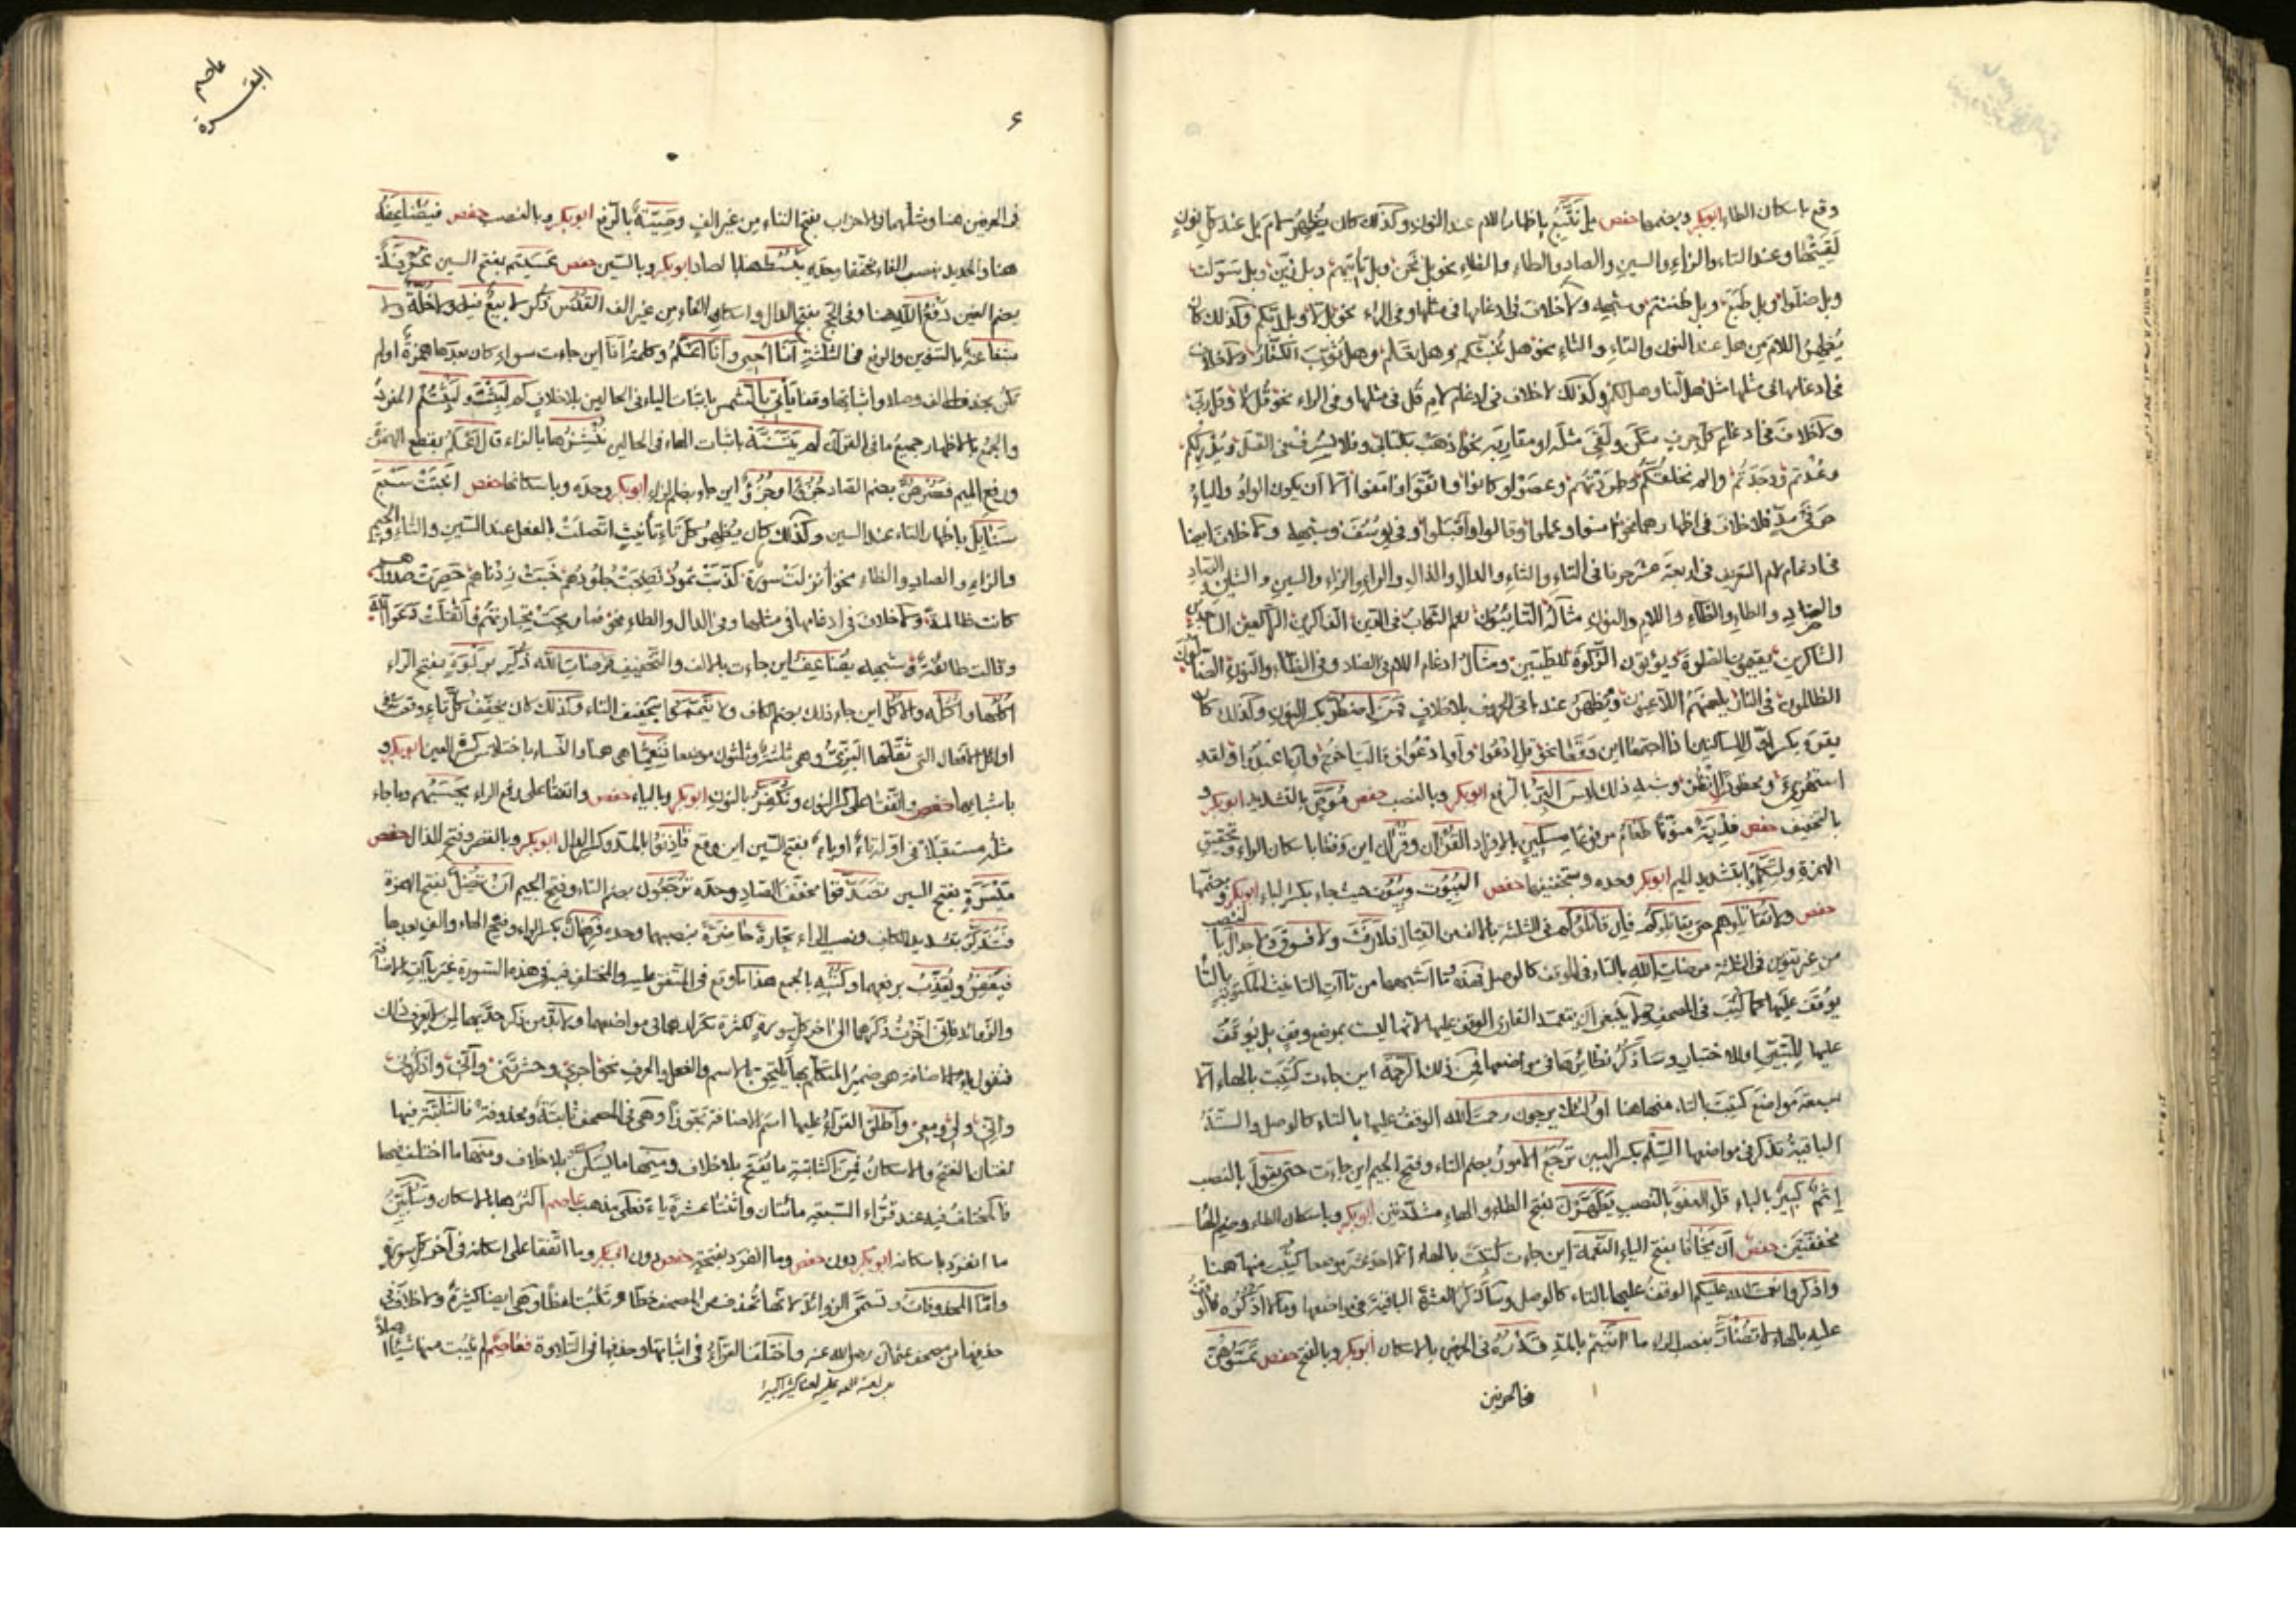 وقع باسكان الطاء ابوبكر وبضمها حفص بل نتبع باظهار اللام عند النون وكذلك كان يظهر لام بل عند كل نون
لقيتها وعند التاء والزاء والسين والصاد والطاء والظاء نحو بل نحن وبل تأتيهم وبل زين وبل سولت
وبل ضلوا وبل طبع وبل ظننتم وشبهه ولا خلاف في ادغامها في مثلها وفي الراء نحو بل لا وبل ربكم وكذلك كان
يظهر اللام من هل عند النون والتاء والثاء نحو هل ننبئكم وهل تعلم وهل ثوب الكفار ولا خلاف
في ادغامها في مثلها مثل هل لنا وهل لكم وكذلك لا خلاف في ادغام لام قل في مثلها وفي الراء نحو قل لا وقل رب
ولا خلاف في ادغام كل حرف سكن ولقي مثله او مقاربه نحو اذهب بكتابي فلا يسرف في القتل ويدرككم
وعدتم ووجدتم والم نخلقكم وطردتهم وعصوا وكانوا واتقوا وآمنوا الا ان يكون الواو والياء
حرفي مد فلا خلاف في اظهارهما نحو آمنوا وعملوا وقالوا واقبلوا وفي يوسف وشبهه ولا خلاف ايضا
في ادغام لام التعريف في اربعة عشر حرفا في التاء والثاء والدال والذال والراء والزاء والسين والشين والصاد
والضاد والطاء والظاء واللام والنون مثاله التائبون نعم الثواب في الدين الذاكرين الراكعين الساجدين
الشاكرين يقيمون الصلوة ويؤتون الزكوة للطيبين ومثال ادغام اللام في الضاد وفي الظاء والنون الضالون
الظالمون في النار يلعنهم اللاعنون ويظهر عند باقي الحروف بلا خلاف فمن اضطر بكسر النون وكذلك كان
يقرء بكسر اول الساكنين اذا اجتمعا اين وقعا نحو قل ادعوا او ادعوا وقالت اخرج وان اعبدوا ولقد
استهزئ ومحظورا انظر وشبه ذلك ليس البر بالرفع ابوبكر وبالنصب حفص موص بالتشديد ابوبكر و
بالتخفيف حفص فدية منونا طعام مرفوعا مسكين بالافراد القرآن وقرآن اين وقعا باسكان الراء وتحقيق
الهمزة ولتكملوا بتشديد الميم ابوبكر وحده وبتخفيفها حفص البيوت وبيوت حيث جاء بكسر الباء ابوبكر وبضمها
حفص ولا تقاتلوهم حتى يقاتلوكم فان قاتلوكم في الثلثة بالالف من القتال فلا رفث ولا فسوق ولا جدال بالنصب
من غير تنوين في الثلثة مرضات الله بالتاء في الوقف كالوصل فهذه وما اشبهها من تاآت التانيث المكتوبة بالتاء
يوقف عليها كما كتبت في المصحف ولا ينبغي ان يتعمد القارئ الوقف عليها لانها ليست بموضع وقف بل يوقف
عليها للتبيين او للاختبار وسأذكر نظائرها في مواضعها فمن ذلك الرحمة اين جاءت كتبت بالهاء الا
سبعة مواضع كتبت بالتاء منها هنا اولئك يرجون رحمت الله الوقف عليها بالتاء كالوصل والستة
الباقية تذكر في مواضعها السلم بكسر السين ترجع الامور بضم التاء وفتح الجيم اين جاءت حتى يقول بالنصب
اثم كبير بالباء قل العفو بالنصب يطهرن بفتح الطاء والهاء مشددتين ابوبكر وباسكان الطاء وضم الهاء
مخففتين حفص ان يخافا بفتح الياء النعمة اين جاءت كتبت بالهاء الا احد عشر موضعا كتبت منها هنا
واذكروا نعمت الله عليكم الوقف عليها بالتاء كالوصل وسأذكر العشرة الباقية في مواضعها وما لا اذكره فالوقف
عليه بالهاء لا تضار بنصب الراء ما آتيتم بالمد قدره في الحرفين بالاسكان ابوبكر وبالفتح حفص تمسوهن
في الحرفين
البقرة
عاصم
٦
في الحرفين هنا ومثلهما في الاحزاب بفتح التاء من غير الف وصية بالرفع ابوبكر وبالنصب حفص فيضاعفه
هنا والحديد بنصب الفاء مخففا وحده يبسط هنا بالصاد ابوبكر وبالسين حفص عسيتم بفتح السين غرفة
بضم الغين دفع الله هنا وفي الحج بفتح الدال واسكان الفاء من غير الف القدس ذكر لا بيع فيه ولا خلة ولا
شفاعة بالتنوين والرفع في الثلثة انا احيي وانا اعلم وكلمة انا اين جاءت سواء كان بعدها همزة اولم
تكن بحذف الالف وصلا واثباتها وقفا يأتي بالشمس باثبات الياء في الحالين بلا خلاف كم لبثت ولبثتم المفرد
والجمع بالاظهار جميع ما في القرآن لم يتسنه باثبات الهاء في الحالين ننشزها بالزاء قال اعلم بقطع الهمزة
ورفع الميم فصرهن بضم الصاد جزءا وجزء اين جاء بضم الزاء ابوبكر وحده وباسكانها حفص انبتت سبع
سنابل باظهار التاء عند السين وكذلك كان يظهر كل تاء تأنيث اتصلت بالفعل عند السين والثاء والجيم
والزاء والصاد والظاء نحو انزلت سورة كذبت ثمود نضجت جلودهم خبت زدناهم حصرت صدورهم
كانت ظالمة ولا خلاف في ادغامها في مثلها وفي الدال والطاء نحو فما ربحت تجارتهم فلما اثقلت دعوا الله
وقالت طائفة وشبهه يضاعف اين جاءت بالالف والتخفيف مرضات الله ذكر بربوة بفتح الراء
اكلها واكله والاكل اين جاء ذلك بضم الكاف ولا تيمموا بتخفيف التاء وكذلك كان يخفف كل تاء وقعت في
اوائل الافعال التي ثقلها البزي وهي ثلثة وثلثون موضعا فنعما هي هنا والنساء باختلاس كسرة العين ابوبكر و
باشباعها حفص واتفقا على كسر النون ونكفر بالنون ابوبكر وبالياء حفص واتفقا على رفع الراء يحسبهم وما جاء
مثله مستقبلا في اوله تاء او ياء بفتح السين اين وقع فاذنوا بالمد وكسر الذال ابوبكر وبالقصر وفتح الذال حفص
ميسرة بفتح السين تصدقوا مخفف الصاد وحده ترجعون بضم التاء وفتح الجيم ان تضل بفتح الهمزة
فتذكر بتشديد الكاف ونصب الراء تجارة حاضرة بنصبهما وحده فرهان بكسر الراء وفتح الهاء والف بعدها
فيغفر ويعذب برفعهما وكتبه بالجمع هذا ما وقع في المتفق عليه والمختلف فيه في هذه السورة غير ياآت الاضافة
والزوائد فاني اخرت ذكرها الى آخر كل سورة لكثرة تكرارهما في مواضعهما ولا بد من ذكر حدهما لمن لا يعرف ذلك
فنقول ياء الاضافة هي ضمير المتكلم بها يلتحق بالاسم والفعل والحرف نحو اجري وحشرتني وآتي واذكروني
واني ولي ومعي واطلق القراء عليها اسم الاضافة تجوزا وهي في المصحف ثابتة ومحذوفة فالثابتة فيها
لغتان الفتح والاسكان فمن الثابتة ما يفتح بلا خلاف ومنها ما يسكن بلا خلاف ومنها ما اختلف فيها
فالمختلف فيه عند قراء السبعة مائتان واثنتا عشرة ياء فعلى مذهب عاصم اكثرها بالاسكان وسأبين
ما انفرد باسكانه ابوبكر دون حفص وما انفرد بفتحه حفص دون ابي بكر وما اتفقا على اسكانه في آخر كل سورة
واما المحذوفات وتسمى الزوائد لانها تحذف من المصحف خطا وتثبت لفظا وهي ايضا كثيرة ولا خلاف في
حذفها من مصحف عثمان رضي الله عنه واختلف القراء في اثباتها وحذفها في التلاوة فعاصم لم يثبت منها شيئا اصلا